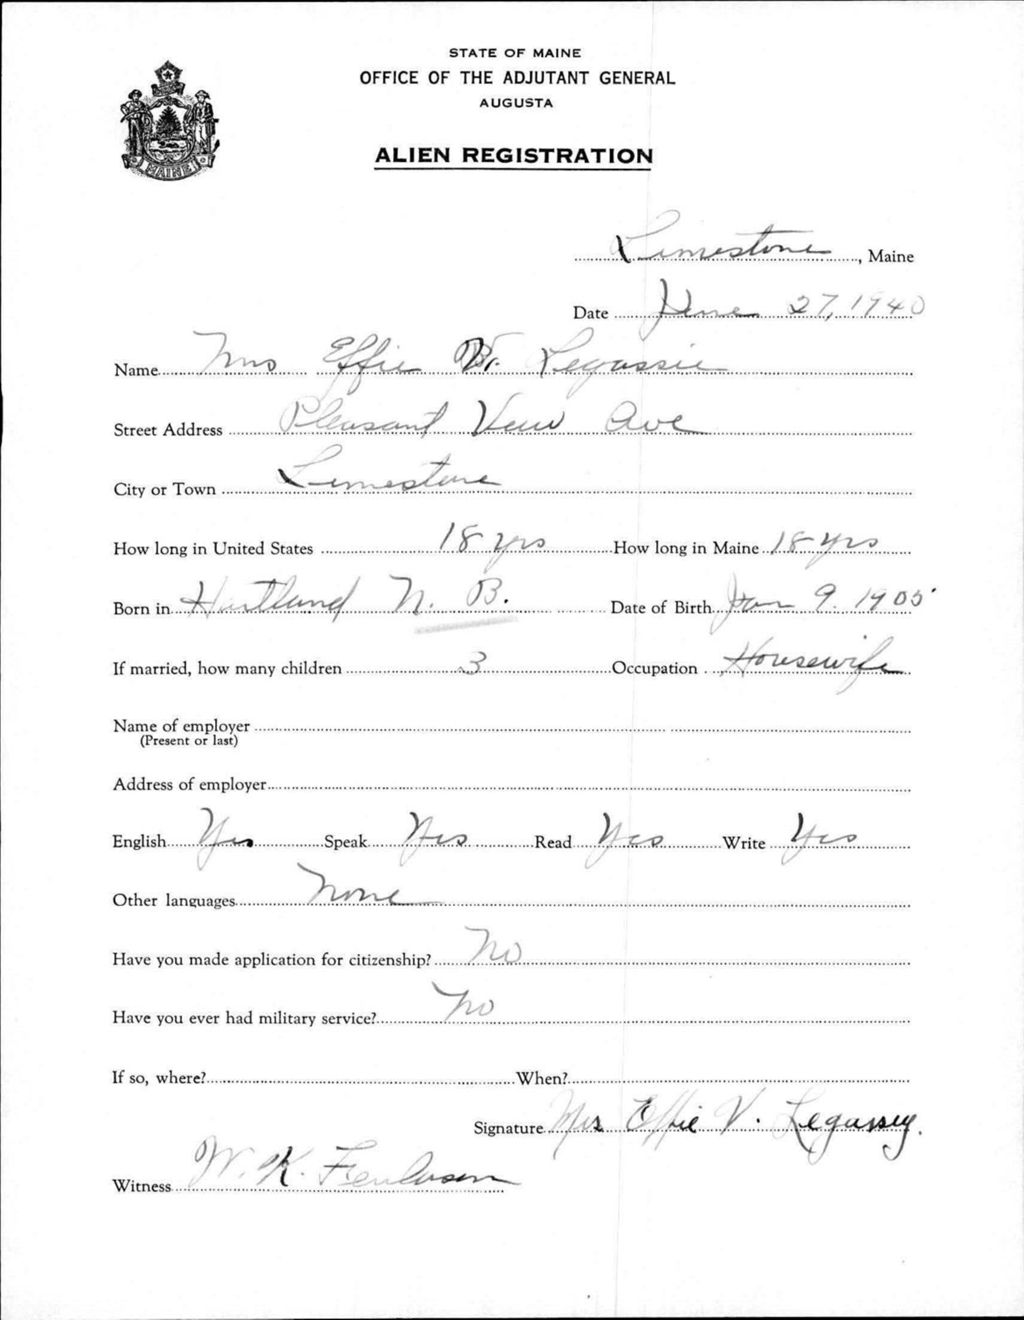 STATE OF MAINE
OFFICE OF THE ADJUTANT GENERAL
AUGUSTA
ALIEN REGISTRATION
MAINE
Limestone, Maine
Date June 27, 1940
Name Mrs Effie Legassie
Street Address Pleasant View Ave
City or Town Limestone
How long in United States 18 yrs How long in Maine 18 yrs
Born in Hartland N. B. Date of Birth Jan 9. 1905
If married, how many children 3 Occupation Housewife
Name of employer
(Present or last)
Address of employer
English Yes Speak Yes Read Yes Write Yes
Other languages None
Have you made application for citizenship? No
Have you ever had military service? No
If so, where? When?
Signature Mrs Effie V. Legassey.
Witness W. K.